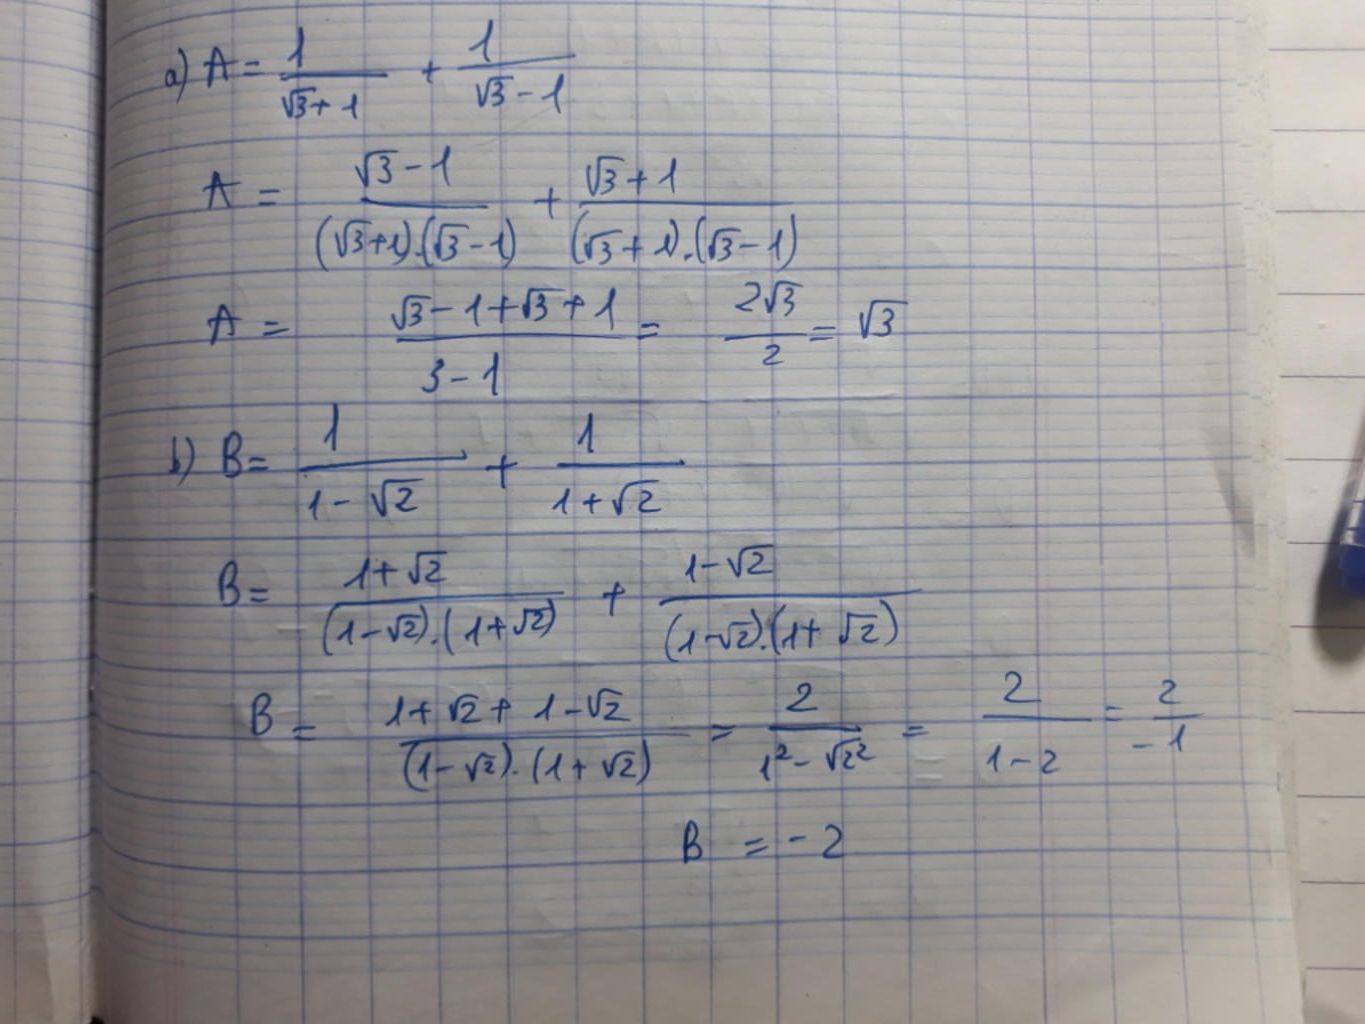 a) A = 1/(√3+1) + 1/(√3-1)
A = (√3-1)/((√3+1).(√3-1)) + (√3+1)/((√3+1).(√3-1))
A = (√3-1+√3+1)/(3-1) = 2√3/2 = √3
b) B = 1/(1-√2) + 1/(1+√2)
B = (1+√2)/((1-√2).(1+√2)) + (1-√2)/((1-√2).(1+√2))
B = (1+√2+1-√2)/((1-√2).(1+√2)) = 2/(1²-√2²) = 2/(1-2) = 2/-1
B = -2